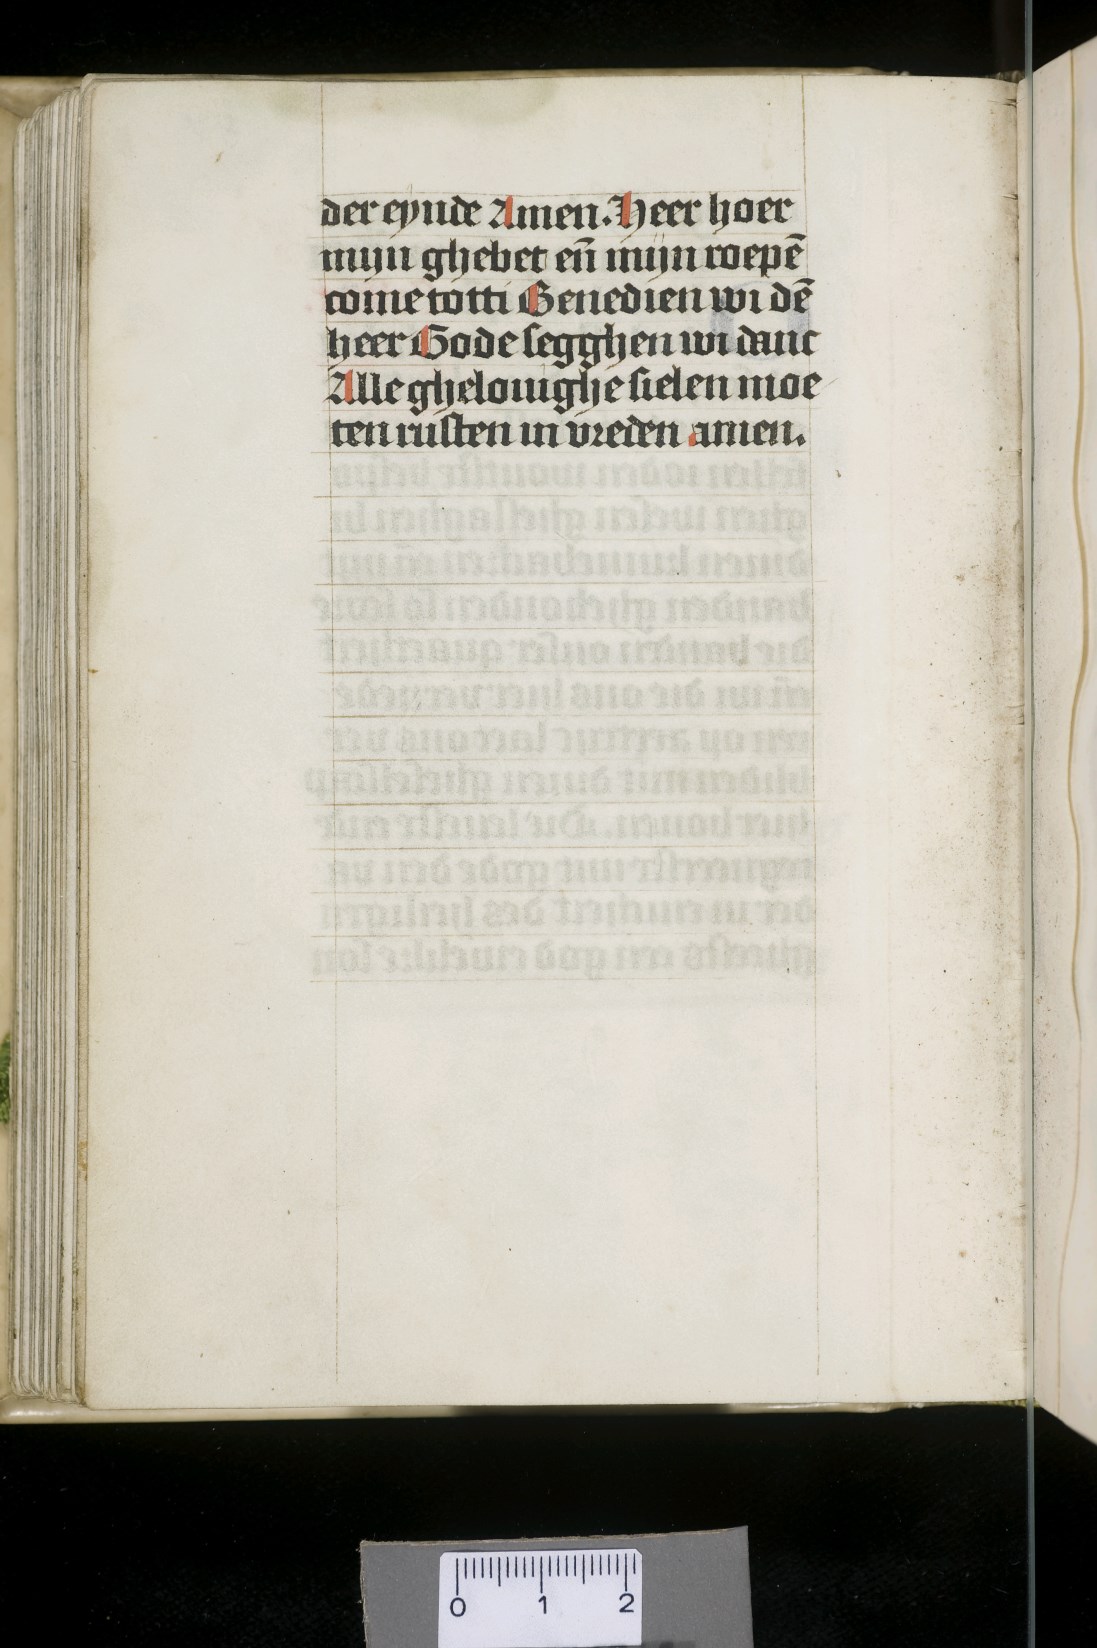 der eynde Amen. Heer hoer
mijn ghebet en̄ mijn roepē
come totti Benedien wi dē
heer Gode segghen wi danc
Alle ghelouighe sielen moe
ten rusten in vreden amen.
0 1 2